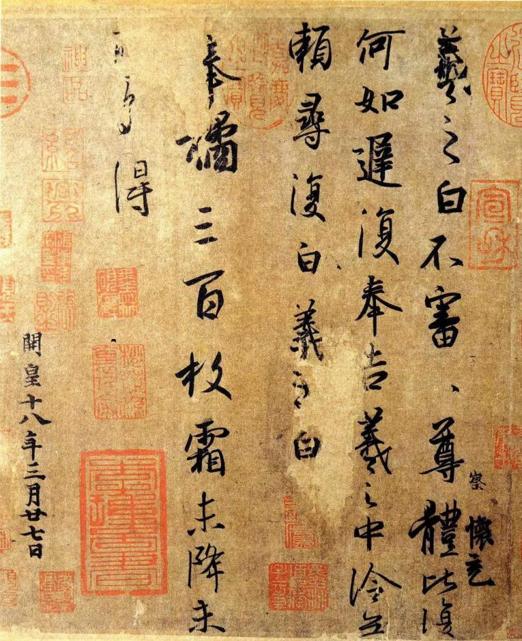 羲之白不審、尊體比復
察
懷充
何如遲復奉告羲之中冷無
賴尋復白羲之白
奉橘三百枚霜未降未
可多得
開皇十八年三月廿七日
宣和